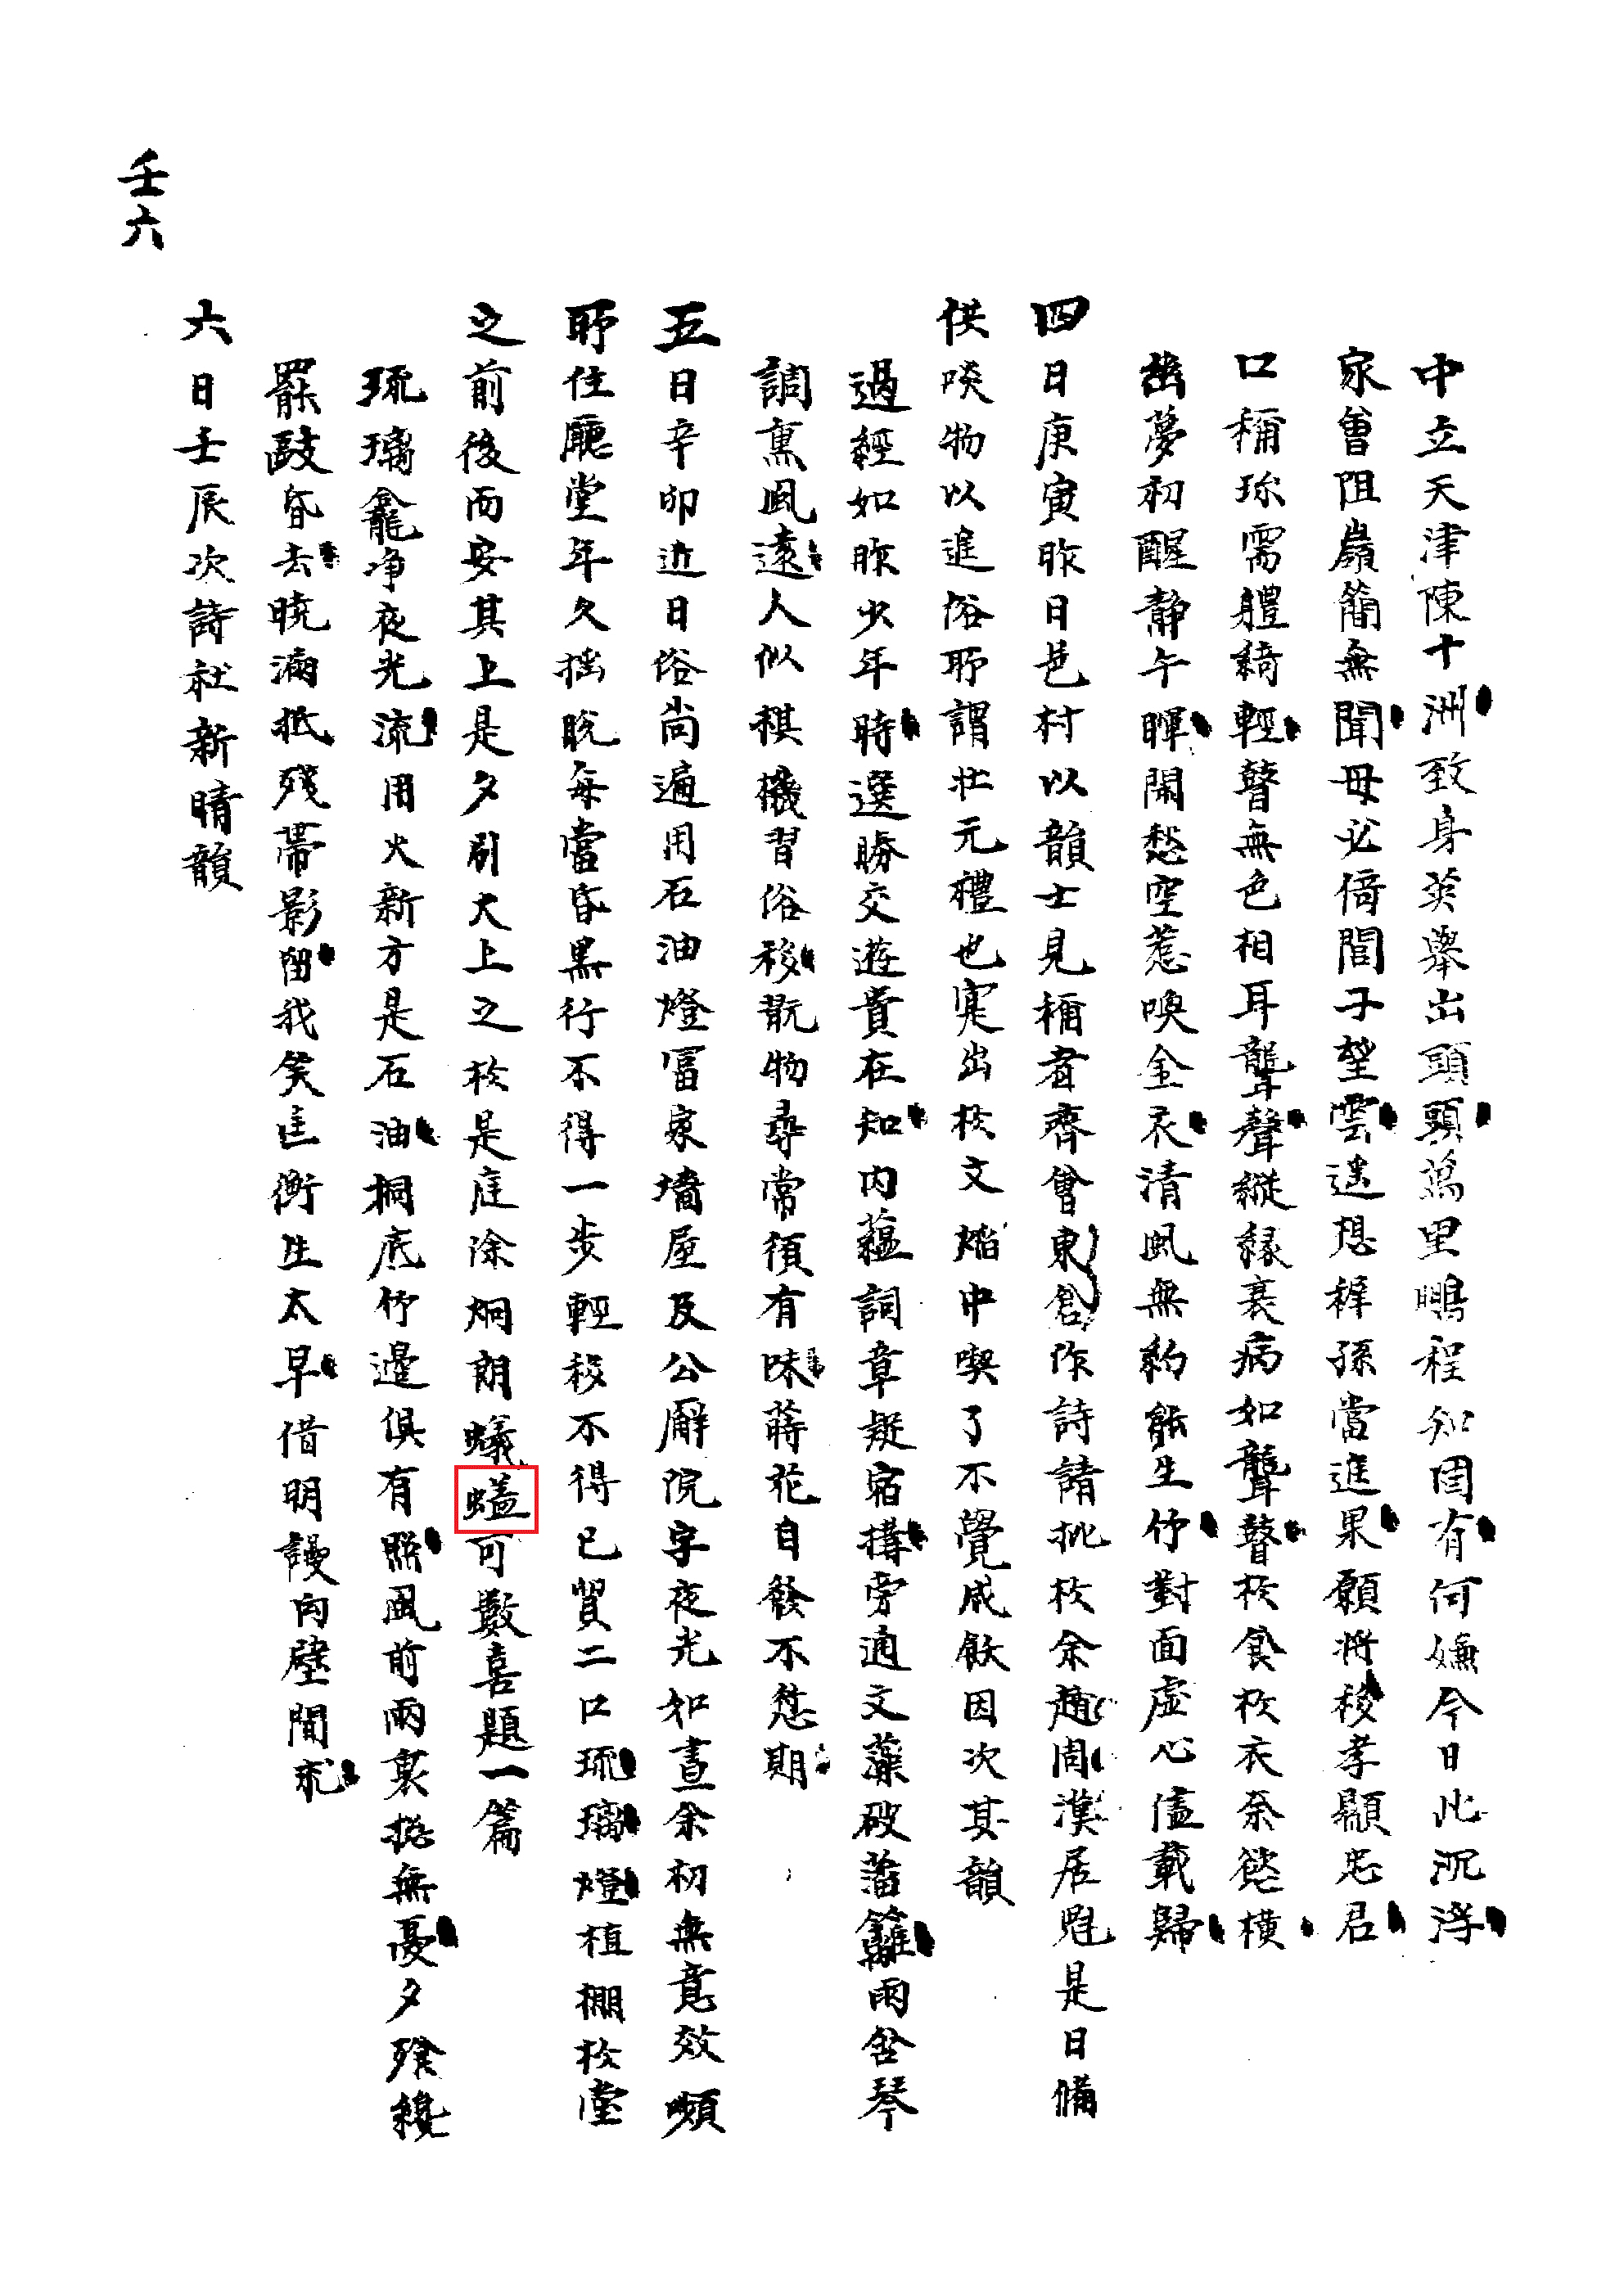 中立天津陳十洲致身英舉出頭頭萬里鵬程知固有何嫌今日此沉浮
家曾阻嚴簡無聞毋必倚閭子望雲遥想稺孫當進果願將移孝顯忠君
口稱珎需軆綺輕瞽無色相耳聾聲縱縁衰病如聾瞽於食於衣奈慾橫
幽夢初醒靜午暉閑愁空惹喚金衣清風無約能生竹對面虛心儘載歸
四日庚寅昨日邑村以韻士見稱者齊會東倉作詩請批於余趙周漢居魁是日備
供啖物以進俗所謂壯元禮也寔出於文焰中喫了不覺成飫因次其韻
過經如昨少年時選勝交遊貴在知内蘊詞章疑宿搆旁通文藻破藩籬雨含琴
調熏風遠人似棋機習俗移翫物尋常須有味蒔花自發不愆期
五日辛卯近日俗尚遍用石油燈冨家墻屋及公廨院宇夜光如晝余初無意效嚬
所住廳堂年久搖脫每當昏黑行不得一步輕移不得已貿二口琉璃燈植棚於堂
之前後而安其上是夕刷火上之於是庭除烱朗蟻蠭可數喜題一篇
琉璃龕净夜光流用火新方是石油桐底竹邊俱有照風前雨裏揔無憂夕飧纔
罷敲昏去曉漏抵殘帶影留我笑匡衡生太早借明謾向壁間求
六日壬辰次詩社新晴韻
壬六